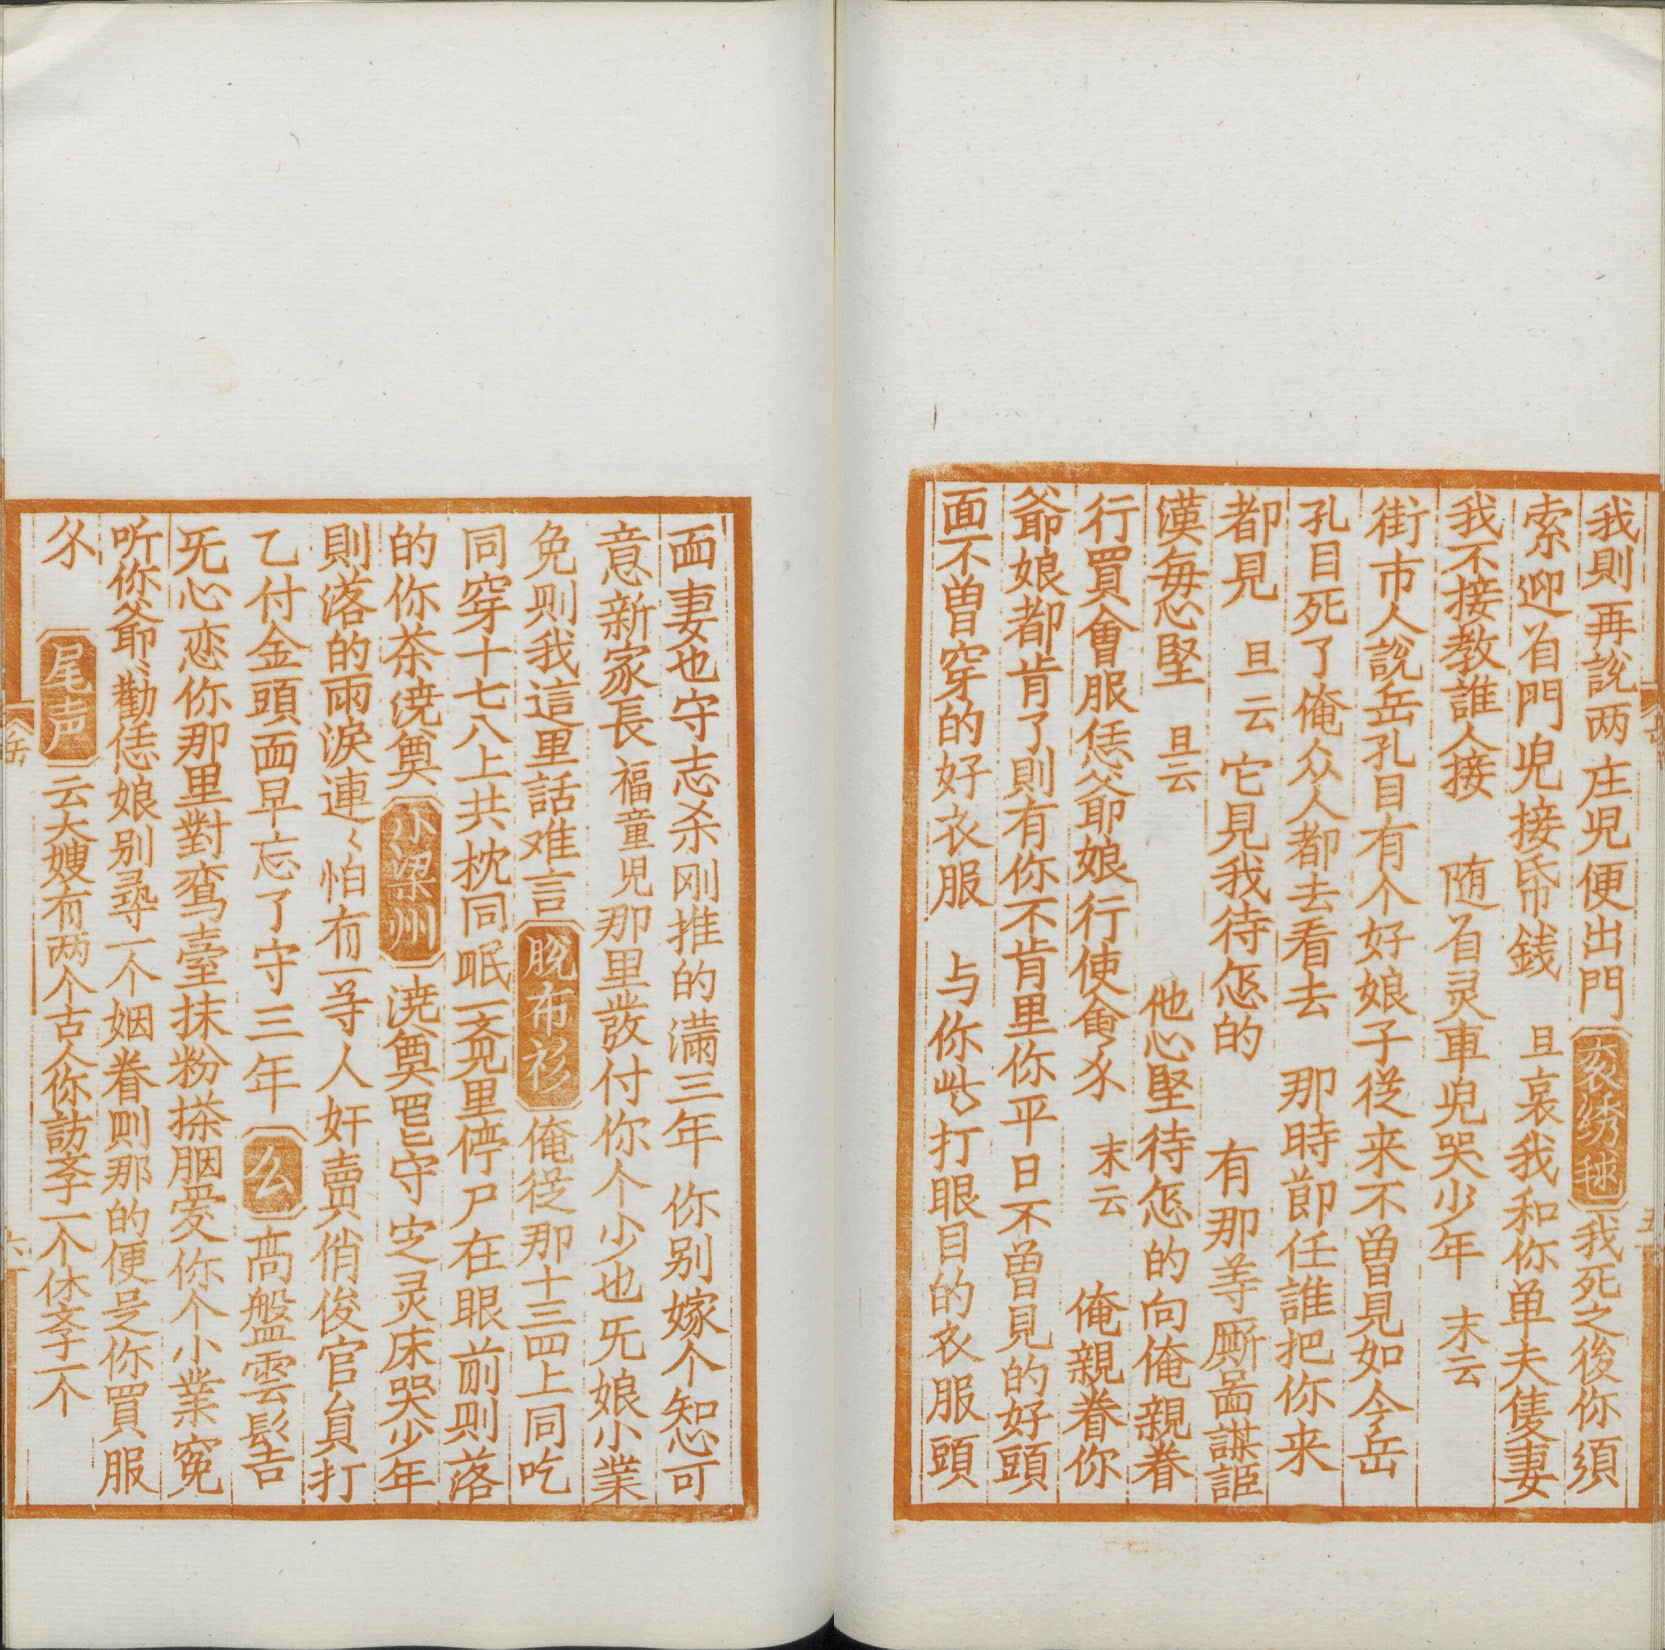 我則再說两庄児便出門 衮綉毬 我死之後你須
索迎着門児接昏錢 旦哀我和你单夫隻妻
我不接教誰人接 随着灵車児哭少年 末云
街市人說岳孔目有个好娘子從来不曽見如今岳
孔目死了俺众人都去看去 那時節任誰把你来
都見 旦云 它見我待怎的 有那等厮啚謀詎
漢每心堅 旦云 他心堅待怎的向俺親眷
行買會服恁爺娘行使會釆 末云 俺親眷你
爺娘都肯了則有你不肯里你平日不曽見的好頭
面不曽穿的好衣服 与你些打眼目的衣服頭
面妻也守志杀刚推的满三年 你别嫁个知心可
意新家長 福童児那里發付你个少也旡娘小業
免则我這里話难言 脱布衫 俺從那十三四上同吃
同穿十七八上共枕同眠一斎里停尸在眼前则落
的你茶澆奠 小梁州 澆奠罷守定灵床哭少年
則落的兩淚連〻怕有一等人奸賣俏俊官員打
乙付金頭面早忘了守三年 么 髙盤雲髻吉
旡心恋你那里對鸾臺抹粉搽胭爱你个小業冤
听你爺〻勸恁娘别尋一个姻眷则那的便是你買服
釆 尾声 云大嫂有两个古人你訪斈一个休斈一个